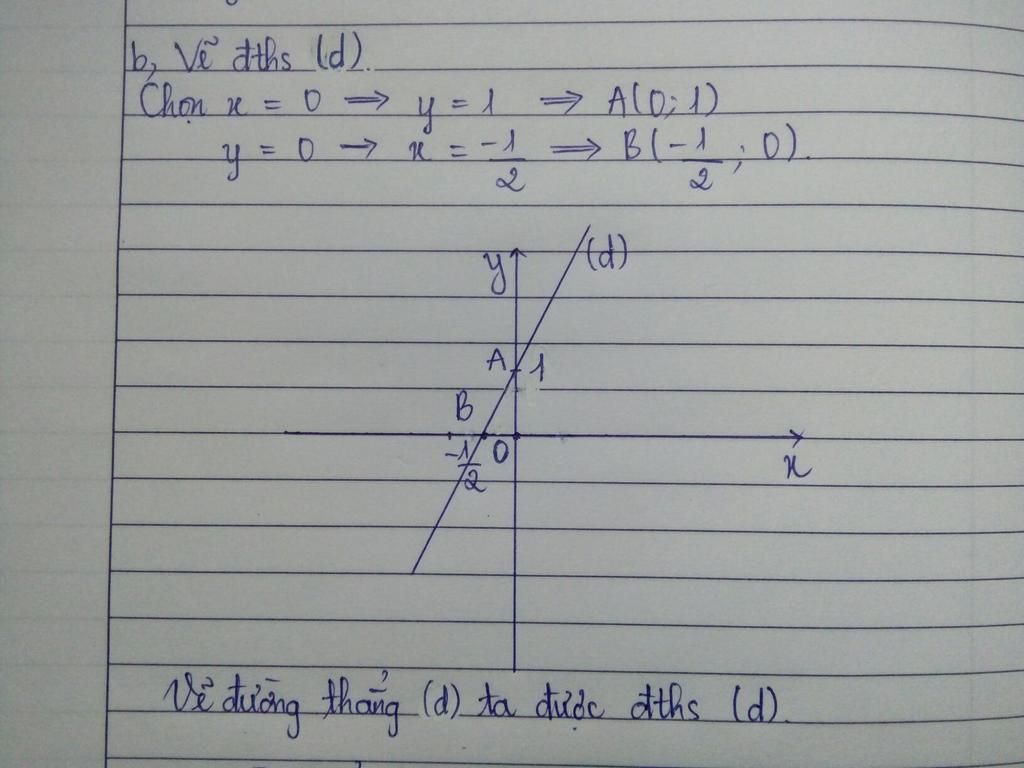 b, Vẽ đths (d).
Chọn x = 0 ⟹ y = 1 ⟹ A(0; 1)
y = 0 → x = -1/2 ⟹ B(-1/2; 0).
y
(d)
A
1
B
-1/2
0
x
Vẽ đường thẳng (d) ta được đths (d).